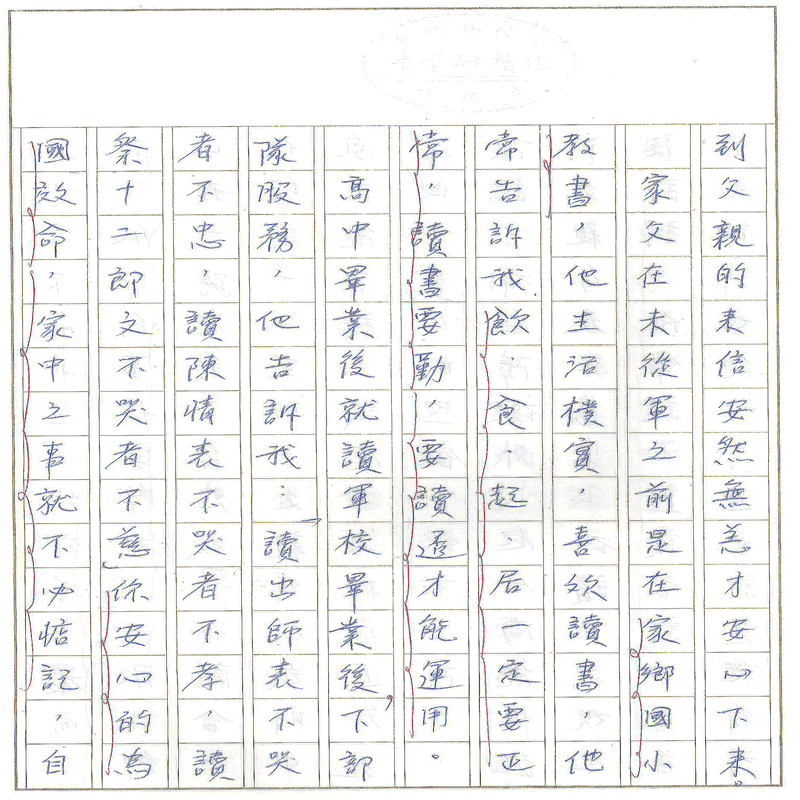 到父親的來信安然無恙才安心下來。
家父在未從軍之前是在家鄉國小
教書，他生活樸實，喜歡讀書，他
常告訴我飲、食、起、居一定要正
常，讀書要勤，要讀透才能運用。
高中畢業後就讀軍校畢業後，下部
隊服務，他告訴我：「讀出師表不哭
者不忠，讀陳情表不哭者不孝，讀
祭十二郎文不哭者不慈」你安心的為
國效命，家中之事就不必惦記，自